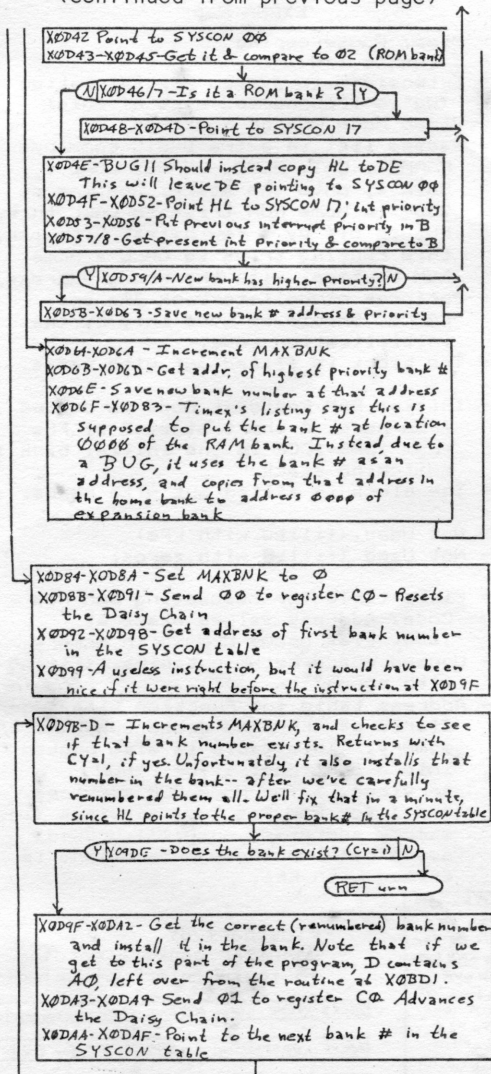 (continued from previous page)
XØD42 Point to SYSCON ØØ
XØD43-XØD45-Get it & compare to Ø2 (ROM bank)
N XØD46/7-Is it a ROM bank? Y
XØD4B-XØD4D-Point to SYSCON 17
XØD4E-BUG!! Should instead copy HL to DE
This will leave DE pointing to SYSCON ØØ
XØD4F-XØD52-Point HL to SYSCON 17; int priority
XØD53-XØD56-Put previous interrupt priority in B
XØD57/8-Get present int priority & compare to B
Y XØD59/A-New bank has higher priority? N
XØD5B-XØD63-Save new bank # address & priority
XØD64-XØD6A - Increment MAXBNK
XØD6B-XØD6D-Get addr. of highest priority bank #
XØD6E-Save new bank number at that address
XØD6F-XØD83-Timex's listing says this is
supposed to put the bank # at location
ØØØØ of the RAM bank. Instead, due to
a BUG, it uses the bank # as an
address, and copies from that address in
the home bank to address ØØØØ of
expansion bank
XØD84-XØD8A-Set MAXBNK to Ø
XØD8B-XØD91-Send ØØ to register CØ-Resets
the Daisy Chain
XØD92-XØD9B-Get address of first bank number
in the SYSCON table
XØD99-A useless instruction, but it would have been
nice if it were right before the instruction at XØD9F
XØD9B-D - Increments MAXBNK, and checks to see
if that bank number exists. Returns with
CY=1, if yes. Unfortunately, it also installs that
number in the bank-- after we've carefully
renumbered them all. We'll fix that in a minute,
since HL points to the proper bank# in the SYSCON table
Y XØ9DE -Does the bank exist? (CY=1) N
RETurn
XØD9F-XØDA2-Get the correct (renumbered) bank number
and install it in the bank. Note that if we
get to this part of the program, D contains
AØ, left over from the routine at XØBD1.
XØDA3-XØDA9 Send Ø1 to register CØ. Advances
the Daisy Chain.
XØDAA-XØDAF-Point to the next bank # in the
SYSCON table